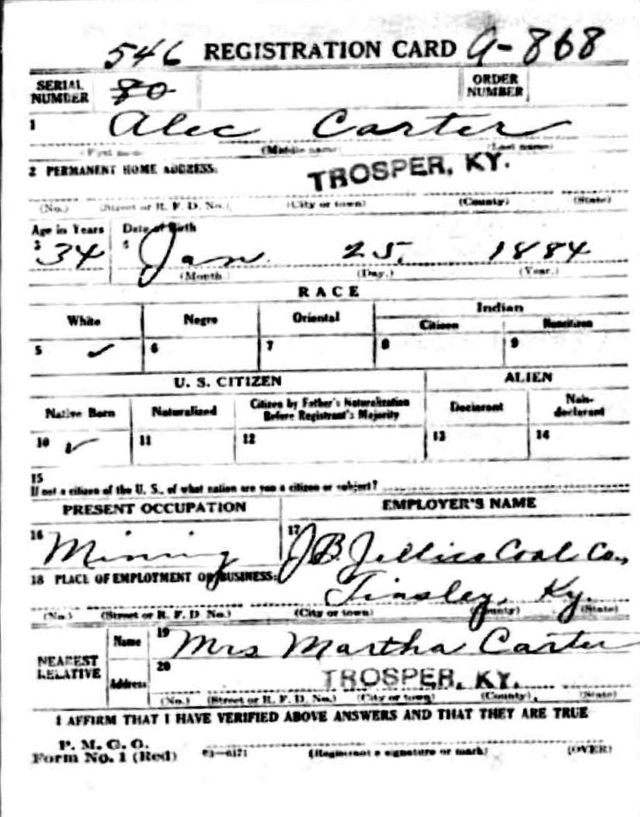 546 REGISTRATION CARD A-868
SERIAL NUMBER 80 ORDER NUMBER
1 Alec Carter
(First name) (Middle name) (Last name)
2 PERMANENT HOME ADDRESS: TROSPER, KY.
(No.) (Street or R. F. D. No.) (City or town) (County) (State)
Age in Years Date of Birth
3 34 4 Jan. 25. 1884
(Month.) (Day.) (Year.)
RACE
White Negro Oriental Indian
Citizen Noncitizen
5 ✓ 6 7 8 9
U. S. CITIZEN ALIEN
Native Born Naturalized Citizen by Father's Naturalization Before Registrant's Majority Declarant Non-declarant
10 ✓ 11 12 13 14
15
If not a citizen of the U. S., of what nation are you a citizen or subject?
PRESENT OCCUPATION EMPLOYER'S NAME
16 Mining 17 J B Jellico Coal Co.,
18 PLACE OF EMPLOYMENT OR BUSINESS: Tinsley, Ky.
(No.) (Street or R. F. D. No.) (City or town) (County) (State)
NEAREST RELATIVE Name 19 Mrs Martha Carter
Address 20 TROSPER, KY.
(No.) (Street or R. F. D. No.) (City or town) (County) (State)
I AFFIRM THAT I HAVE VERIFIED ABOVE ANSWERS AND THAT THEY ARE TRUE
P. M. G. O.
Form No. 1 (Red) (Registrant's signature or mark) (OVER)